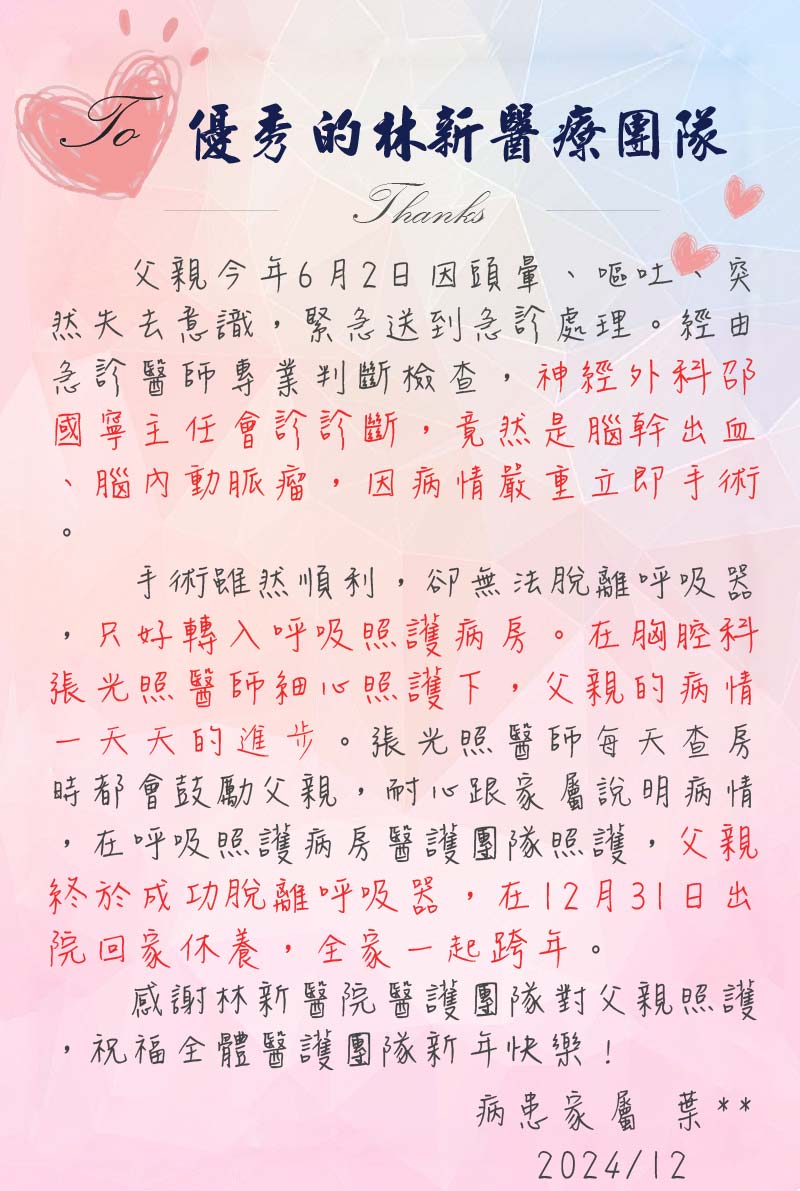 To 優秀的林新醫療團隊
Thanks
父親今年6月2日因頭暈、嘔吐、突
然失去意識，緊急送到急診處理。經由
急診醫師專業判斷檢查，神經外科邵
國寧主任會診診斷，竟然是腦幹出血
、腦內動脈瘤，因病情嚴重立即手術
。
手術雖然順利，卻無法脫離呼吸器
，只好轉入呼吸照護病房。在胸腔科
張光照醫師細心照護下，父親的病情
一天天的進步。張光照醫師每天查房
時都會鼓勵父親，耐心跟家屬說明病情
，在呼吸照護病房醫護團隊照護，父親
終於成功脫離呼吸器，在12月31日出
院回家休養，全家一起跨年。
感謝林新醫院醫護團隊對父親照護
，祝福全體醫護團隊新年快樂！
病患家屬 葉**
2024/12